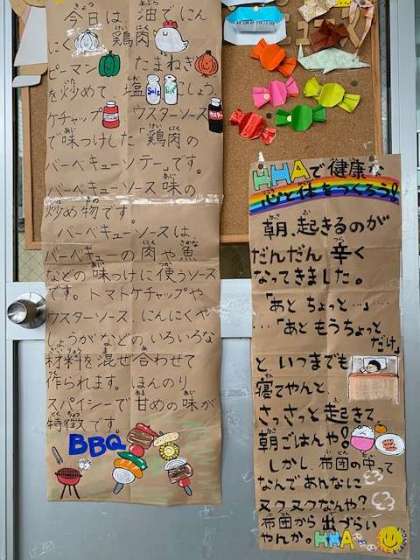 今日は 油でにん
にく 鶏肉
ピーマン たまねぎ
を炒めて、塩 こしょう、
ケチャップ ウスターソース
で味つけした「鶏肉の
バーベキューソテー」です。
バーベキューソース味の
炒め物です。
バーベキューソースは、
バーベキューの肉や魚
などの味つけに使うソース
です。トマトケチャップや
ウスターソース、にんにくや
しょうがなどのいろいろな
材料を混ぜ合わせて
作られます。ほんのり
スパイシーで甘めの味が
特徴です。
BBQ
HHAで健康な
心と体をつくろう!
朝、起きるのが
だんだん辛く
なってきました。
「あと ちょっと…」
…「あと もうちょっと
だけ」
と いつまでも
寝てやんと
さっさっと起きて、
朝ごはんや!
しかし、布団の中って
なんであんなに
ヌクヌクなんや?
布団から出づらい
やんか。HHA